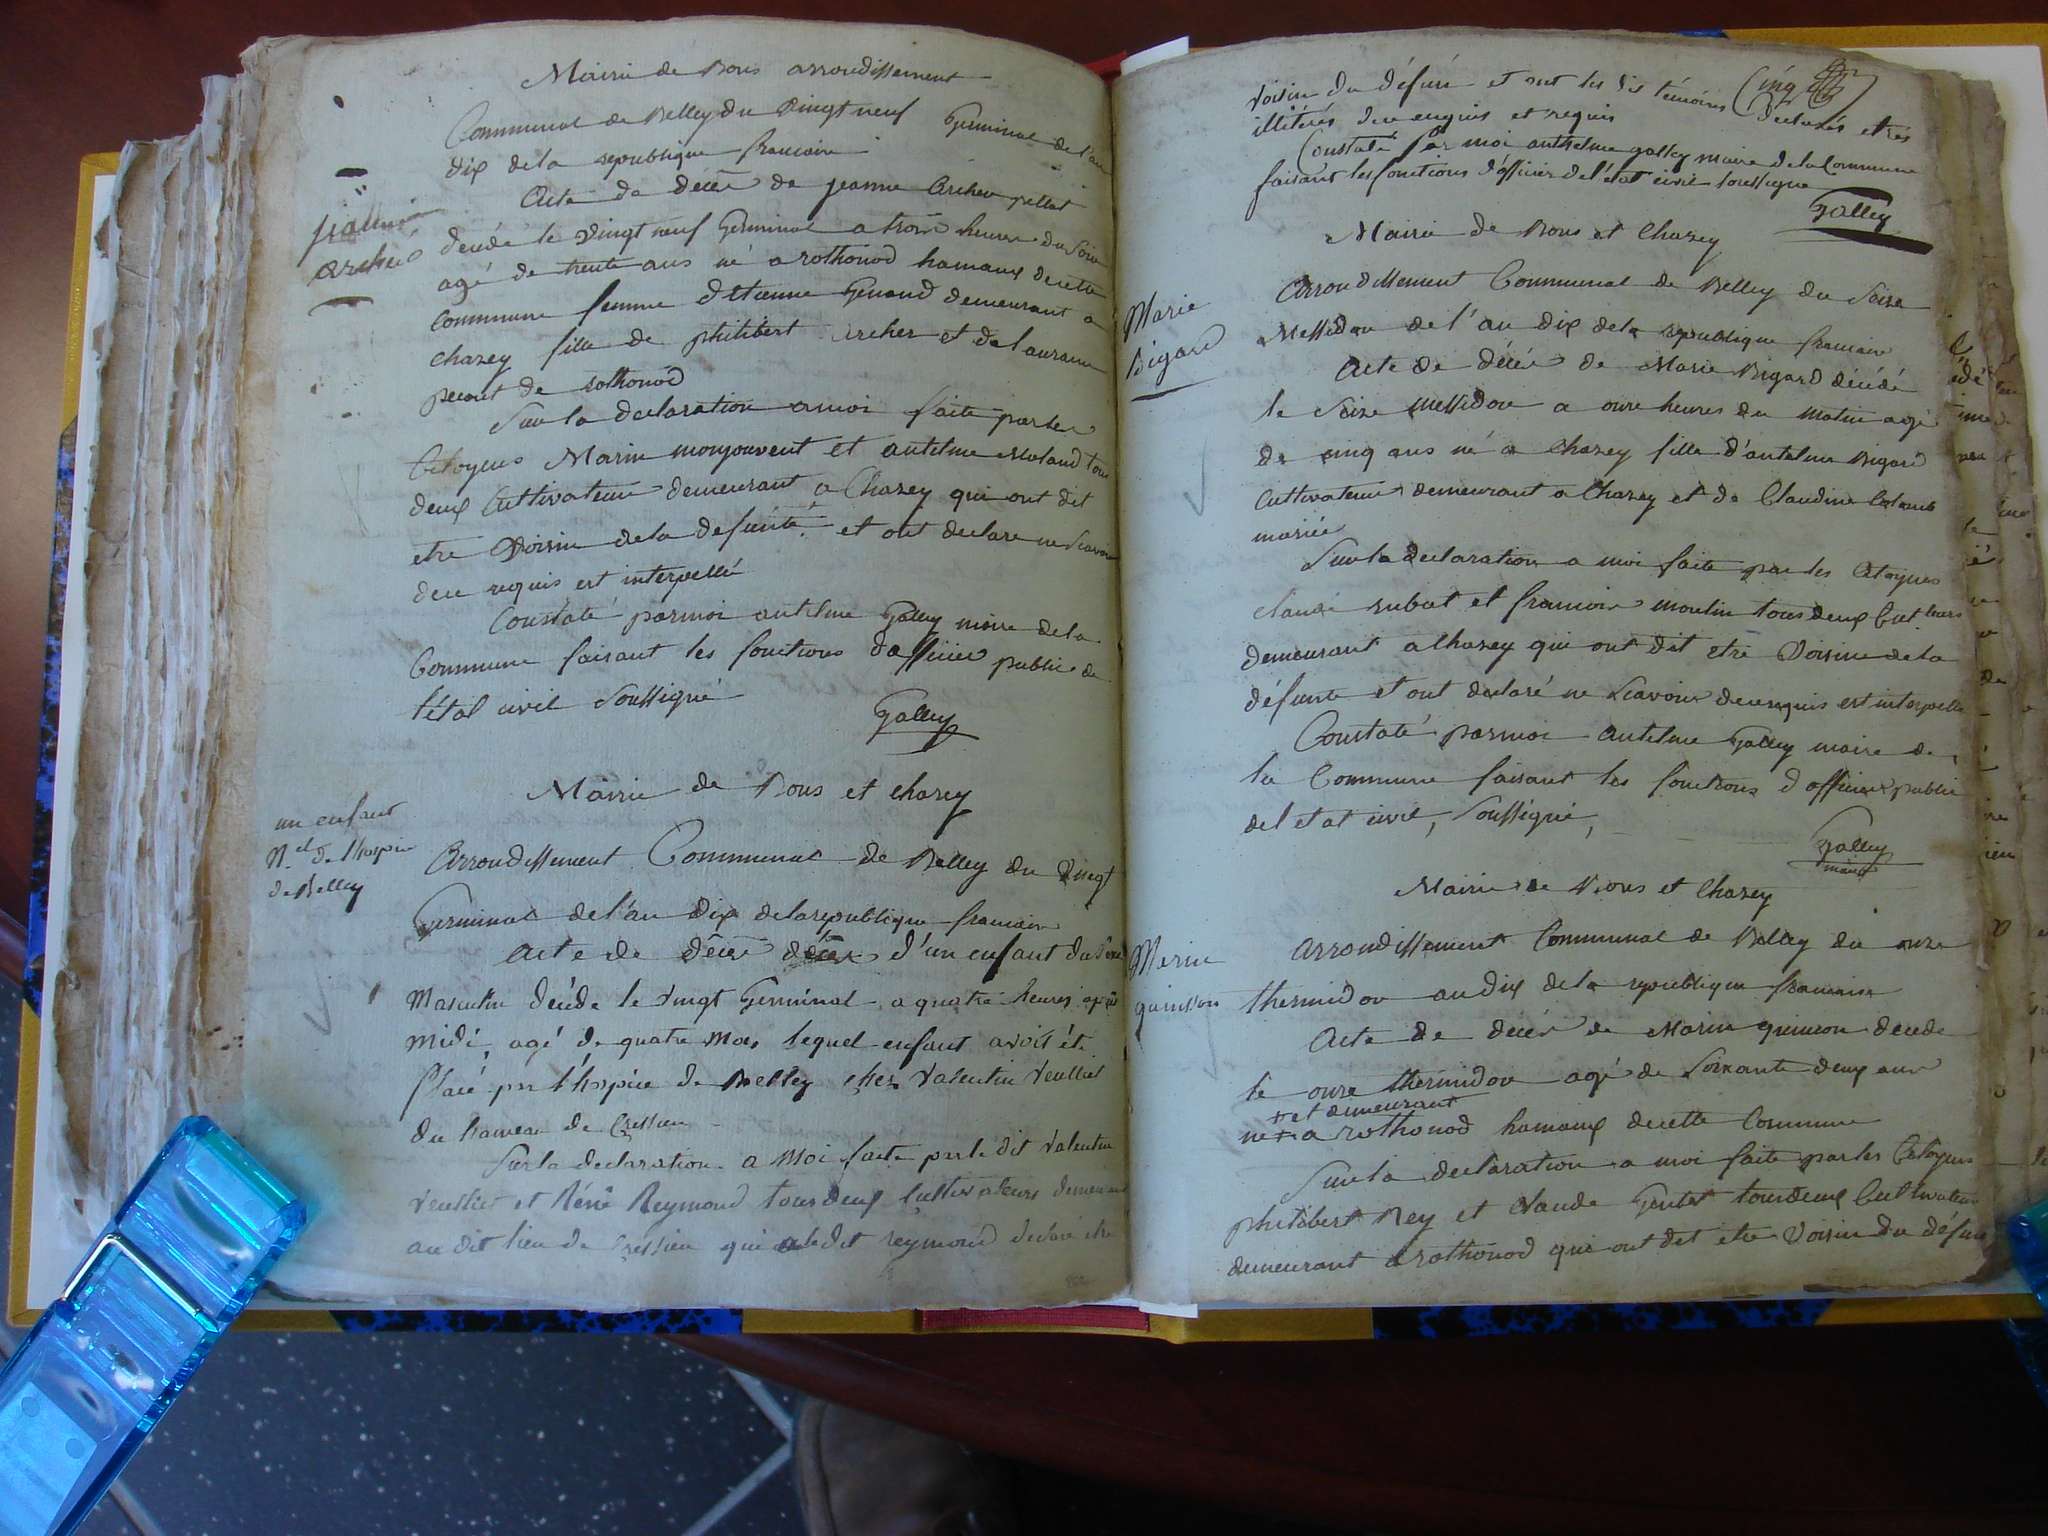 Mairie de Bons arrondissement
Communal de Belley du vingt neuf Germinal de l'an
dix de la republique francaise
Acte de décès de jeanne Archer pellet
jeanne
archer
décédé le vingt neuf Germinal a trois heures du soir
agé de trente ans né a rothonod hamaux de cette
Commune femme d'Etienne Genand demeurant a
Chazey fille de philibert archer et de laurance
de rothonod
Sur la declaration a moi faite par les
Citoyens Marin monjouvent et antelme Moland tous
deux Cultivateur demeurant a Chazey qui ont dit
etre Voisin de la defunte et ont declare ne scavoir
de ce requis est interpellé
Constaté par moi antelme Galley maire de la
Commune faisant les fonctions d'officier public de
l'état civil soussigné
Galley
Mairie de Bons et chazey
un enfant
N.el de l'hospice
de Belley
Arrondissement Communal de Belley du vingt
Germinal de l'an dix de la republique francaise
Acte de décès d'un enfant du sexe
Masculin décédé le vingt Germinal a quatre heures après
midi, agé de quatre mois lequel enfant avoit été
placé par l'hospice de Belley chez Valentin Veulliet
du hameau de Cressieu
Sur la declaration a moi faite par le dit Valentin
Veulliet et Réné Reymond tous deux Cultivateurs demeurant
au dit lieu de Cressieu qui reymond declare etre
voisin du défunt et ont les dis témoins déclarés etres
cinq
illitérés de ce enquis et requis
Constaté par moi anthelme galley maire de la Commune
faisant les fonctions d'officier de l'état civil soussigné
Galley
Mairie de Bons et Chazey
Marie
Bigard
Arrondissement Communal de Belley du seize
Messidor de l'an dix de la republique francaise
Acte de décès de Marie Bigard décédé
le seize Messidor a onze heures du matin agé
de cinq ans né a Chazey fille d'antelme Bigard
Cultivateur demeurant a Chazey et de Claudine Colomb
mariée
Sur la declaration a moi faite par les Citoyens
claude rubat et francois moulin tous deux Cult.teurs
demeurant a Chazey qui ont dit etre Voisin de la
défunte et ont declaré ne scavoir de ce requis est interpellé
Constaté par moi antelme Galley maire de
la Commune faisant les fonctions d'officier public
de l'etat civil, soussigné,
Galley
maire
Mairie de Bons et Chazey
Marin
quinson
Arrondissement Communal de Belley du onze
thermidor an dix de la republique francaise
Acte de décès de Marin quinson decede
le onze thermidor agé de soixante deux ans
+ et demeurant
né + a rothonod hamaux de cette Commune
Sur la declaration a moi faite par les Citoyens
philibert Rey et Claude Gentet tous deux Cultivateur
demeurant a rothonod qui ont dit etre Voisin du défunt